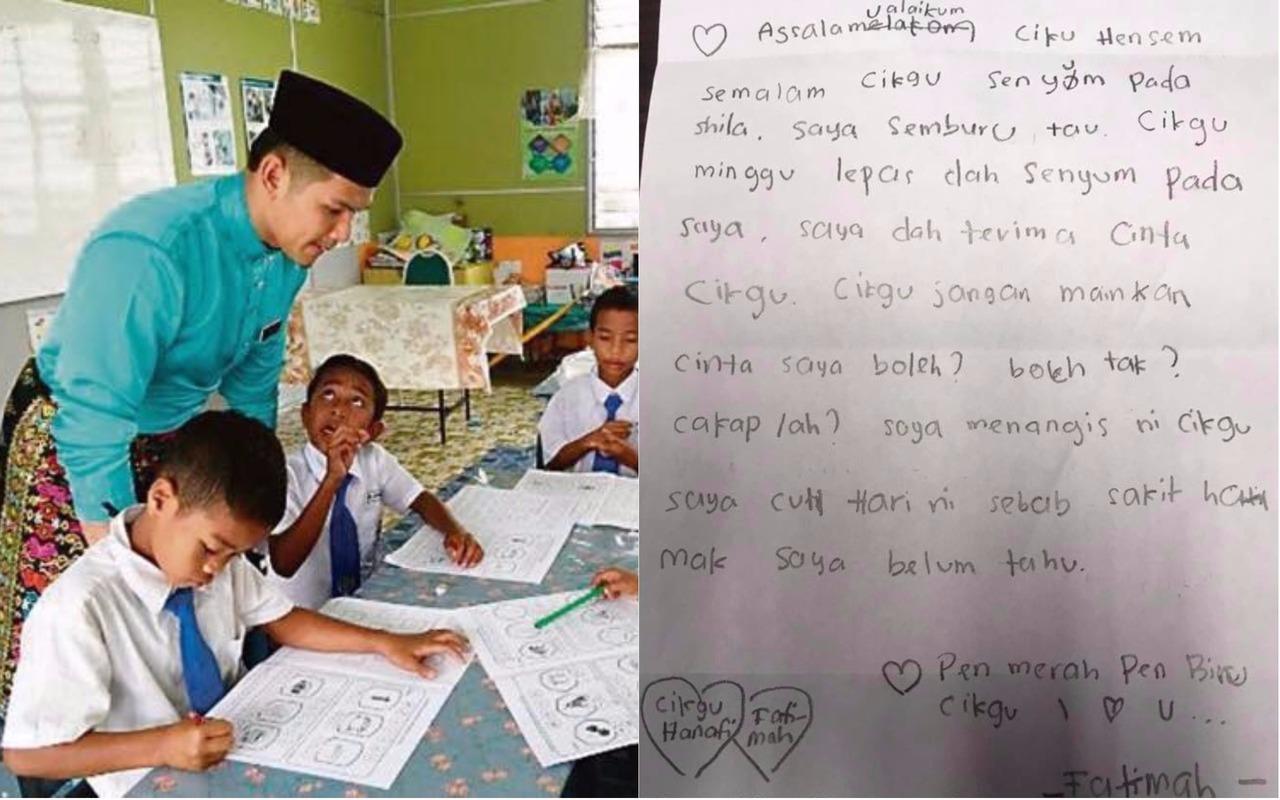 ♡ Assalamelakom ualaikum Ciku Hensem
semalam cikgu senyum pada
shila. saya semburu tau. Cikgu
minggu lepas dah senyum pada
saya, saya dah terima Cinta
Cikgu. Cikgu jangan mainkan
cinta saya boleh? boleh tak?
cakap lah? saya menangis ni cikgu
saya cuti Hari ni sebab sakit hati
mak saya belum tahu.
♡ Pen merah Pen Biru
Cikgu I ♡ U...
Cikgu
Hanafi
Fati-
mah
_Fatimah —